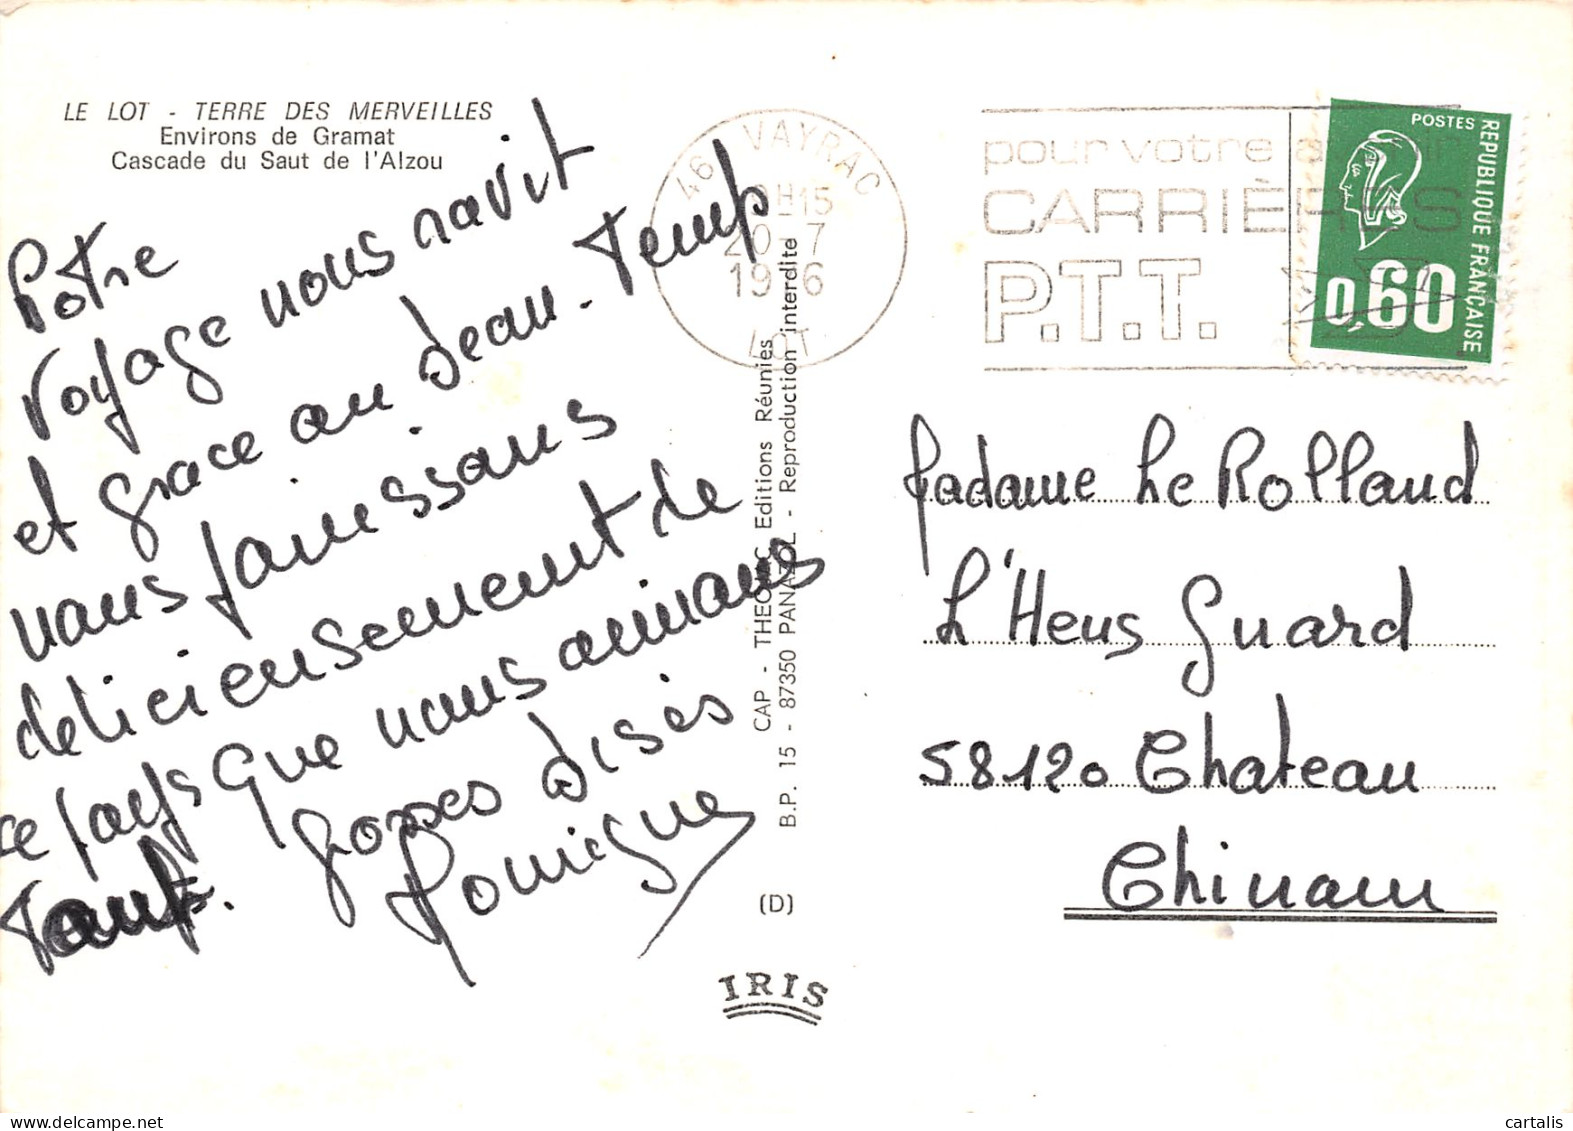 LE LOT - TERRE DES MERVEILLES
Environs de Gramat
Cascade du Saut de l'Alzou
Votre
voyage nous ravit
et grace au beau-Temp
nous jouissons
delicieusement de
ce pays que nous aimons
Tant. Grosses bises
CAP - THEOJAC Editions Réunies
B.P. 15 - 87350 PANAZOL - Reproduction interdite
(D)
IRIS
46 VAYRAC
H15
20-7
19 6
LOT
pour votre avenir
CARRIÈRES
P.T.T.
POSTES
REPUBLIQUE FRANÇAISE
0,60
Madame Le Rolland
L'Heus Guard
58120 Chateau
Chinam
delcampe.net
cartalis